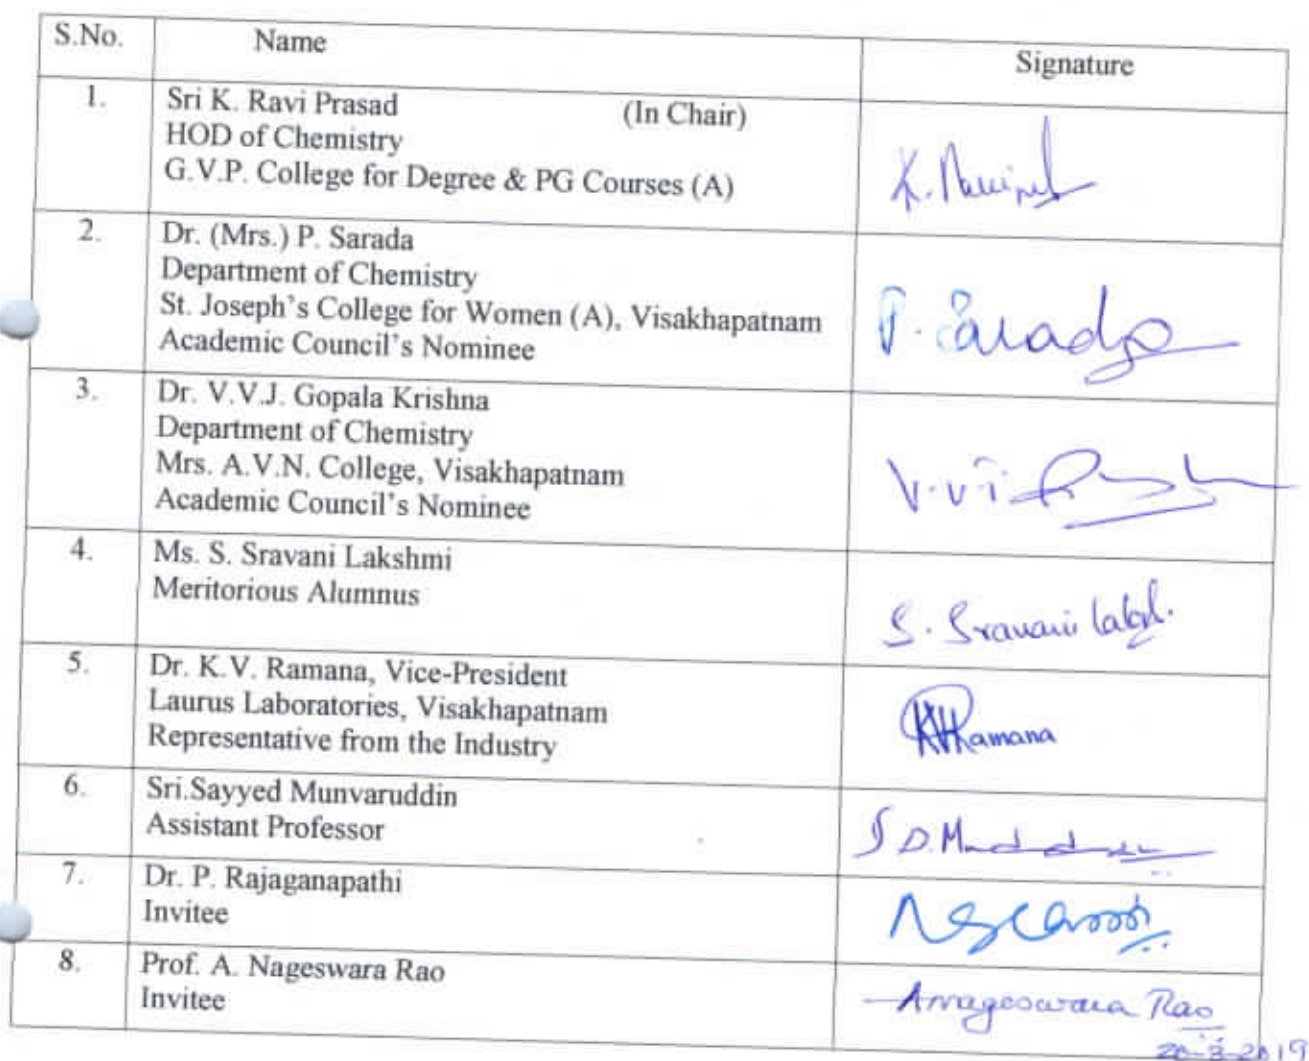 S.No. Name Signature
1. Sri K. Ravi Prasad (In Chair)
HOD of Chemistry
G.V.P. College for Degree & PG Courses (A)
2. Dr. (Mrs.) P. Sarada
Department of Chemistry
St. Joseph's College for Women (A), Visakhapatnam
Academic Council's Nominee
P. Sarada
3. Dr. V.V.J. Gopala Krishna
Department of Chemistry
Mrs. A.V.N. College, Visakhapatnam
Academic Council's Nominee
4. Ms. S. Sravani Lakshmi
Meritorious Alumnus
S. Sravani
5. Dr. K.V. Ramana, Vice-President
Laurus Laboratories, Visakhapatnam
Representative from the Industry
KVRamana
6. Sri.Sayyed Munvaruddin
Assistant Professor
7. Dr. P. Rajaganapathi
Invitee
8. Prof. A. Nageswara Rao
Invitee
Anageswara Rao